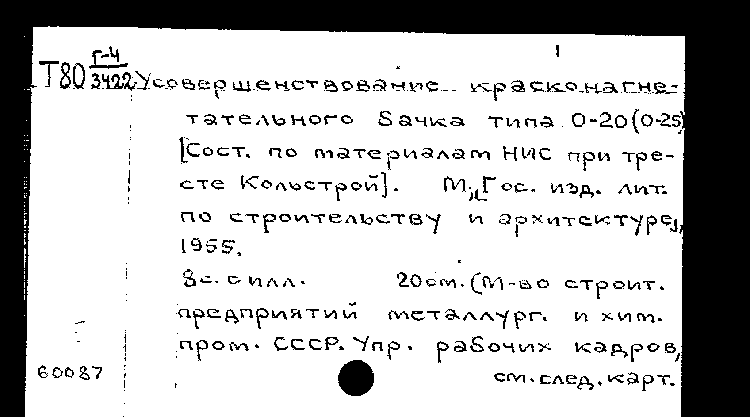 Т80 Г-4/3422 Усовершенствование красконагне-
тательного бачка типа О-20(О-25)
[Сост. по материалам НИС при тре-
сте Кольстрой]. М., [Гос. изд. лит.
по строительству и архитектуре],
1955.
8с. с илл. 20см. (М-во строит.
предприятий металлург. и хим.
пром. СССР. Упр. рабочих кадров,
60087
см. след. карт.